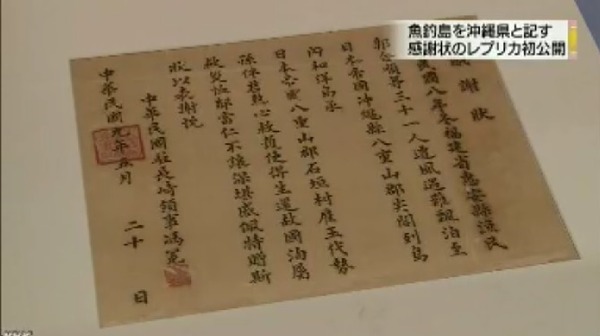 魚釣島を沖縄県と記す
感謝状のレプリカ初公開
謝狀
民國八年冬福建省惠安縣漁民
郭合順等三十一人遭風遇難飄泊至
日本帝國沖繩縣八重山郡尖閣列島
內和洋島承
日本帝國八重山郡石垣村雇玉代勢
孫伴君熱心救護使得生還故國洵屬
救災恤鄰當仁不讓深堪感佩特贈斯
狀以表謝忱
中華民國駐長崎領事馮冕
中華民國九年五月二十日